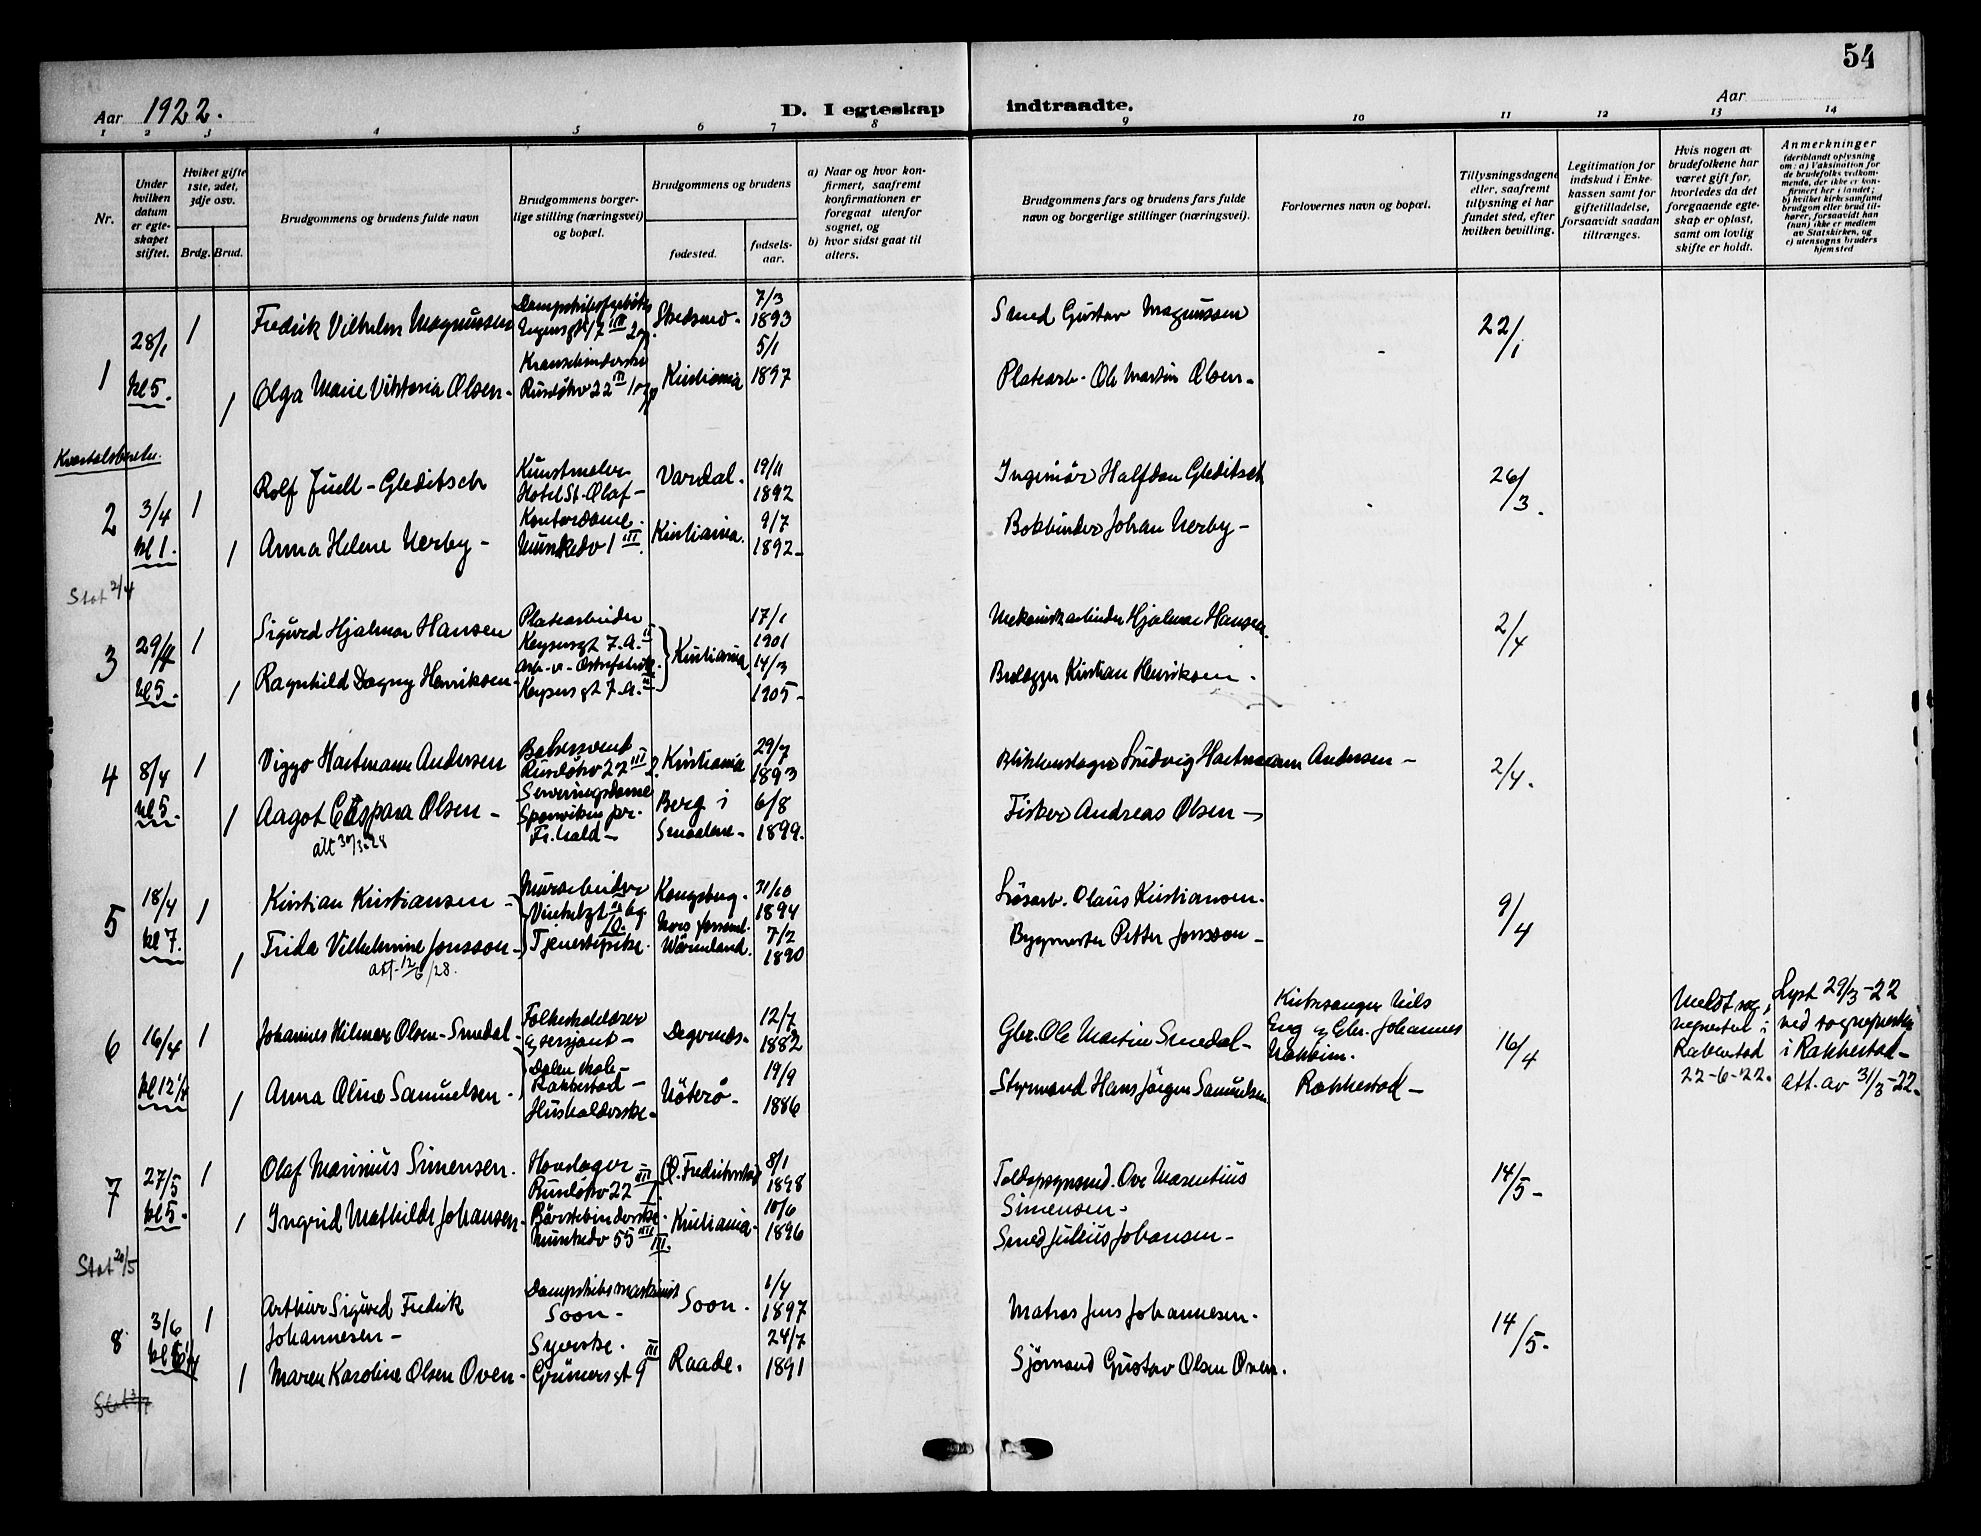 54
Aar 1922.
D. I egteskap indtraadte.
Aar
1 2 3 4 5 6 7 8 9 10 11 12 13 14
Nr.
Under
hvilken
datum
er egte-
skapet
stiftet.
Hviket gifte
1ste, 2det,
3dje osv.
Brdg. Brud.
Brudgommens og brudens fulde navn
Brudgommens borger-
lige stilling (næringsvei)
og bopæl.
Brudgommens og brudens
fødested.
fødsels-
aar.
a) Naar og hvor kon-
firmert, saafremt
konfirmationen er
foregaat utenfor
sognet, og
b) hvor sidst gaat til
alters.
Brudgommens fars og brudens fars fulde
navn og borgerlige stillinger (næringsvei).
Forlovernes navn og bopæl.
Tillysningsdagene
eller, saafremt
tillysning ei har
fundet sted, efter
hvilken bevilling.
Legitimation for
indskud i Enke-
kassen samt for
giftetilladelse,
forsaavidt saadan
tiltrænges.
Hvis nogen av
brudefolkene har
været gift før,
hvorledes da det
foregaaende egte-
skap er opløst,
samt om lovlig
skifte er holdt.
Anmerkninger
(deriblandt oplysning
om: a) Vaksination for
de brudefolks vedkom-
mende, der ikke er kon-
firmert her i landet;
b) hvilket kirkesamfund
brudgom eller brud til-
hører, forsaavidt han
(hun) ikke er medlem
av Statskirken, og
c) utensogns bruders
hjemsted
1 28/1 kl 5.
1 Fredrik Vilhelm Magnussen
Skedsmo. 7/3 1893
Smed Gustav Magnussen
22/1
1 Olga Marie Viktoria Olsen-
Ruseløkv 22 III
Kristiania 5/1 1897
Platearb. Ole Martin Olsen-
2 3/4 kl 1.
1 Rolf Juell-Gleditsch
Kunstmaler
Hotel St. Olaf-
Vardal. 19/11 1892
Ingeniør Halfdan Gleditsch
26/3.
1 Anna Helene Nerby-
Kontordame.
Munkedv 1 III.
Kristiania. 9/7 1892-
Bokbinder Johan Nerby-
Stat 2/4
3 29/4 kl 5.
1 Sigurd Hjalmar Hansen
Platearbeider
Keysersgt 7. A. II
Kristiania 17/1 1901
Mekanisk arbeider Hjalmar Hansen.
2/4
1 Ragnhild Dagny Henriksen-
Keysersgt 7. A.
14/3 1905-
Brolægger Kristian Henriksen.
4 8/4 kl 5.
1 Viggo Hartmann Andersen
Bakersvend
Ruseløkv 22 III
Kristiania 29/7 1893
Blikkenslager Ludvig Hartmann Andersen-
2/4.
1 Aagot Caspara Olsen-
att 30/3-28
Serveringsdame
Sponviken pr.
Fr.hald-
Berg i
Smaalene-
6/8 1899.
Fisker Andreas Olsen-
5 18/4 kl 7.
1 Kristian Kristiansen-
Murarbeider
Kongsberg. 31/10 1894
Løsarb. Olaus Kristiansen.
9/4
1 Frida Vilhelmine Jonsson-
att-12/6/28.
Tjenestepike.
Värmland. 7/2 1890
Bygmester Petter Jonsson-
6 16/4 kl 12 1/4
1 Johannes Hilmar Olsen-Smedal.
Folkeskolelærer
og sersjant-
Dalen skole-
Rakkestad-
Degernes. 12/7 1882
Gbr. Ole Martin Smedal-
Kirkesanger Nils
Eng og Gbr. Johannes
Rakkestad-
16/4
Meldt sog.
nepresten i
Rakkestad
22-6-22.
Lyst 29/3-22
ved sognepresten
i Rakkestad-
att. av 31/3-22.
1 Anna Oline Samuelsen-
Husholderske-
Nøterø- 19/9 1886
Styrmand Hans Jörgen Samuelsen
7 27/5 kl 5.
1 Olaf Marinius Simensen.
Hovslager
Ruseløkv 22 III
Ø. Fredrikstad 8/1 1898
Toldopsynsmd. Ove Marentius
Simensen-
14/5-
1 Ingrid Mathilde Johansen-
Børstebinderske-
Munkedv 55 III
Kristiania- 10/6 1896
Smed Julius Johansen-
Stat 20/5
8 3/6
1 Arthur Sigurd Fredrik
Johannesen-
Dampskibsmaskinist
Soon-
Soon. 1/4 1897
Matros Jens Johannesen.
14/5.
1 Maren Karoline Olsen Oven-
Syerske.
Grünersgt 9 III
Raade. 24/7 1891
Sjømand Gustav Olsen Oven.